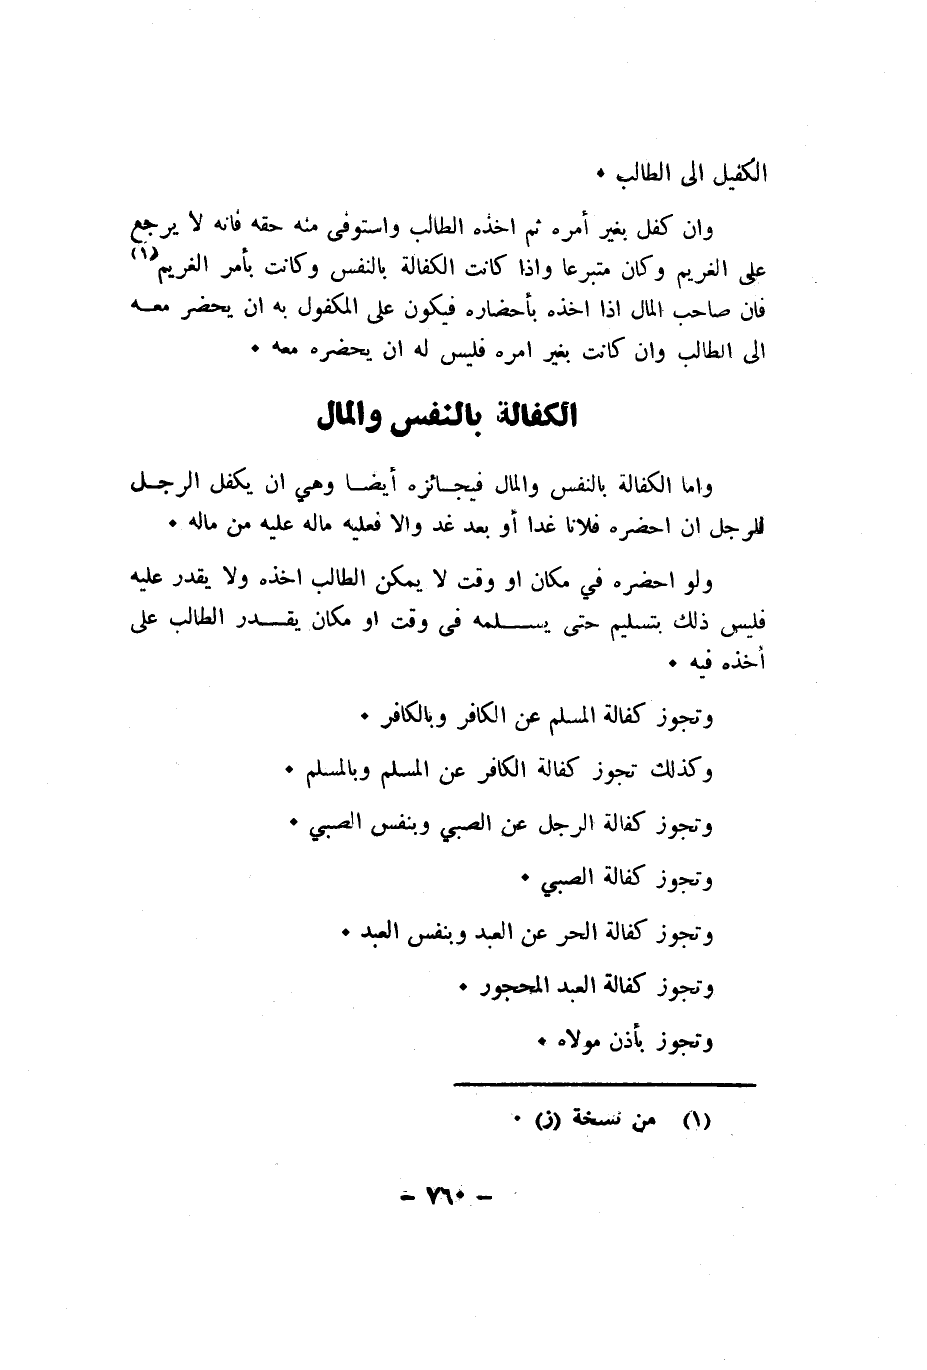 الكفيل الى الطالب ٠
وان كفل بغير أمره ثم اخذه الطالب واستوفى منه حقه فانه لا يرجع
على الغريم وكان متبرعا واذا كانت الكفالة بالنفس وكانت بأمر الغريم(١)
فان صاحب المال اذا اخذه بأحضاره فيكون على المكفول به ان يحضر معــه
الى الطالب وان كانت بغير امره فليس له ان يحضره معه ٠
الكفالة بالنفس والمال
واما الكفالة بالنفس والمال فيجــائزه أيضــا وهي ان يكفل الرجــل
للرجل ان احضره فلانا غدا أو بعد غد والا فعليه ماله عليه من ماله ٠
ولو احضره في مكان او وقت لا يمكن الطالب اخذه ولا يقدر عليه
فليس ذلك بتسليم حتى يســــلمه فى وقت او مكان يقــــدر الطالب على
أخذه فيه ٠
وتجوز كفالة المسلم عن الكافر وبالكافر ٠
وكذلك تجوز كفالة الكافر عن المسلم وبالمسلم ٠
وتجوز كفالة الرجل عن الصبي وبنفس الصبي ٠
وتجوز كفالة الصبي ٠
وتجوز كفالة الحر عن العبد وبنفس العبد ٠
وتجوز كفالة العبد المحجور ٠
وتجوز بأذن مولاه ٠
(١) من نسخة (ز) ٠
– ٧٦٠ –